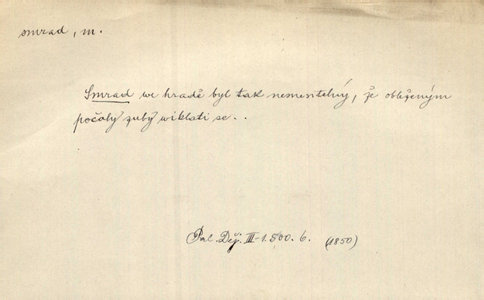 smrad, m.
Smrad we hradě byl tak nesmertelný, že obleženým
počaly zuby wiklati se..
Pal. Děj. III-1. 500. 6. (1850)